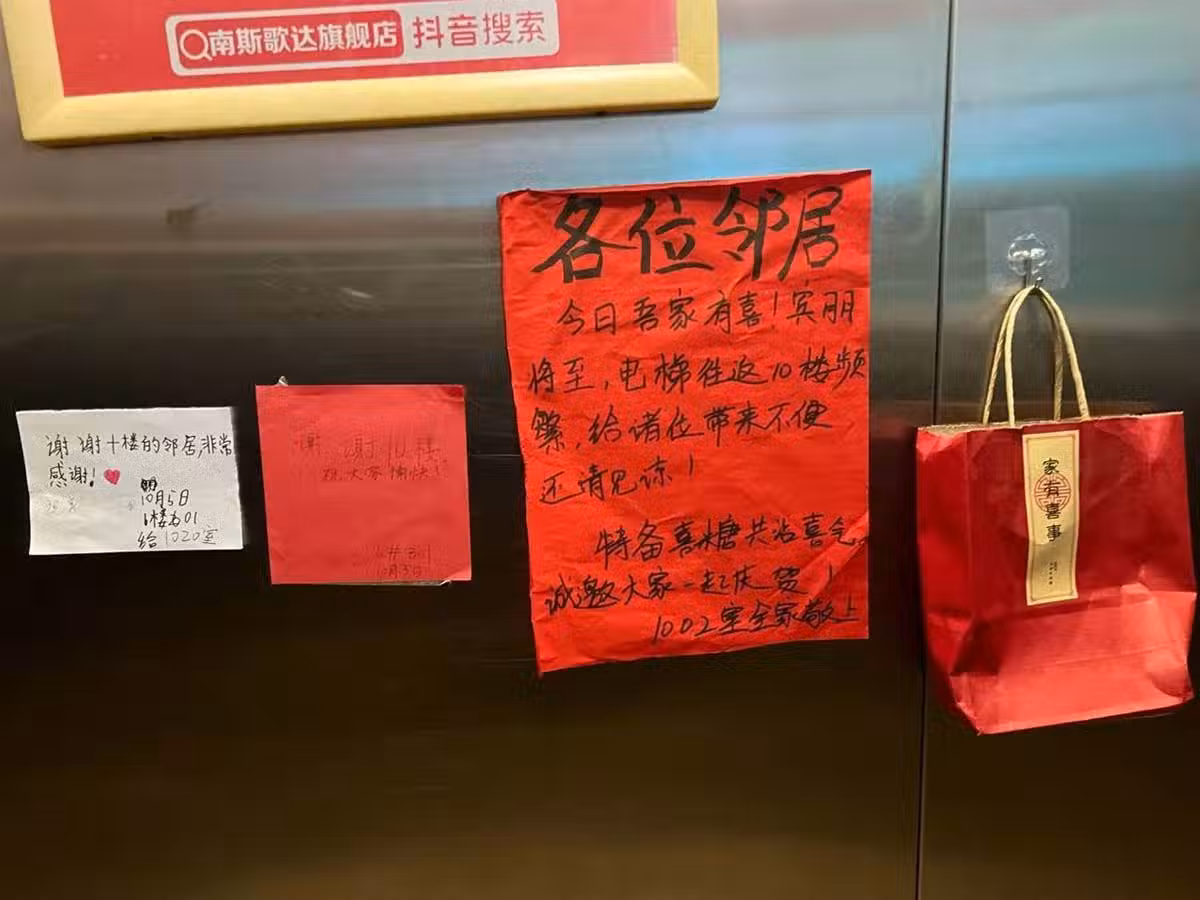 南斯歌达旗舰店 抖音搜索
各位邻居
今日吾家有喜！宾朋
将至，电梯往返10楼频
繁，给诸位带来不便
还请见谅！
特备喜糖共沾喜气
诚邀大家一起庆贺！
1002室全家敬上
谢谢十楼的邻居,非常
感谢！
10月5日
1楼为01
给1020室
谢谢10楼
祝大家愉快！
10月5日
家有喜事